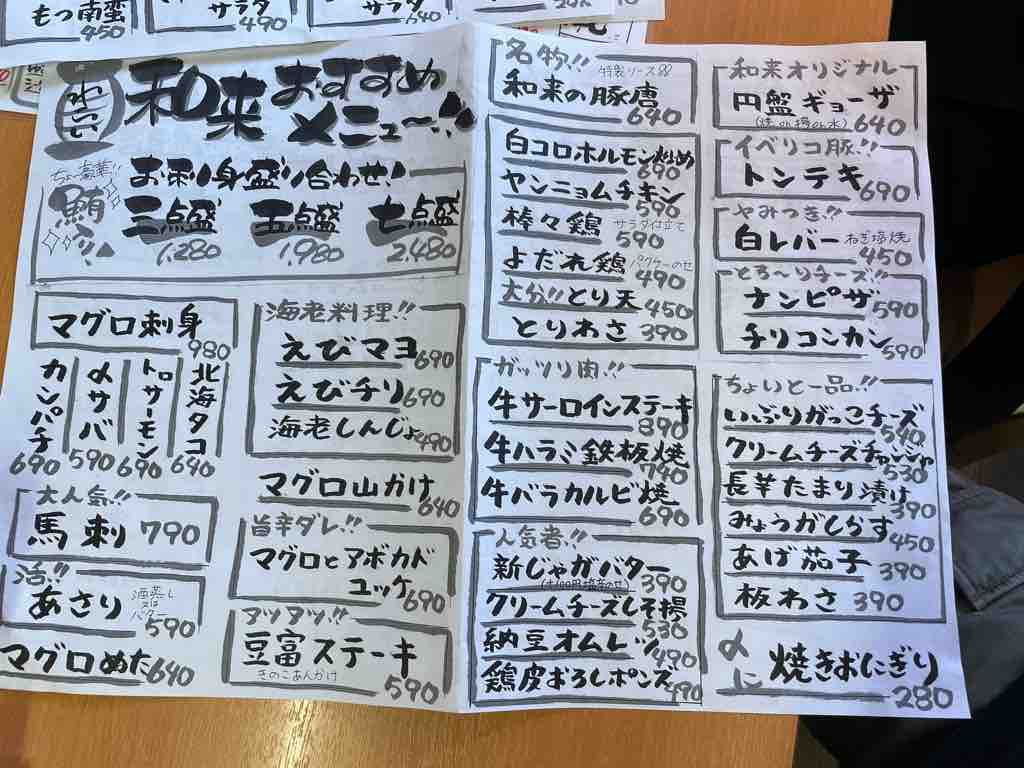 もつ南蛮
450
サラダ
490
サラダ
640
わらい
和来おすすめ
メニュ〜!!
ちょー豪華!!
鮪入り!!
お刺し身盛り合わせ!
三点盛 五点盛 七点盛
1,280 1,980 2,480
マグロ刺身
980
カンパチ
690
〆サバ
590
トロサーモン
690
北海タコ
690
大人気!!
馬刺 790
活!!
あさり
酒蒸し
又は
バター
590
マグロめた 640
海老料理!!
えびマヨ 690
えびチリ 690
海老しんじょ 490
マグロ山かけ
640
旨辛ダレ!!
マグロとアボカド
ユッケ 690
アツアツ!!
豆富ステーキ
きのこあんかけ
590
名物!!
特製ソース
和来の豚唐
640
白コロホルモン炒め
690
ヤンニョムチキン
590
棒々鶏 サラダ仕立て
590
よだれ鶏 パクチーのせ
490
大分!!とり天 450
とりわさ 390
ガッツリ肉!!
牛サーロインステーキ
890
牛ハラミ鉄板焼
740
牛バラカルビ焼
690
人気者!!
新じゃがバター
(+100円塩辛のせ) 390
クリームチーズしそ揚
530
納豆オムレツ
490
鶏皮おろしポンズ
490
和来オリジナル
円盤ギョーザ
(焼 or 揚 or 水) 640
イベリコ豚!!
トンテキ
690
やみつき!!
白レバー ねぎ塩焼
450
とろ〜りチーズ!!
ナンピザ 590
チリコンカン
590
ちょいと一品!!
いぶりがっこチーズ
540
クリームチーズチャンジャ
530
長芋たまり漬け
390
みょうがしらす
450
あげ茄子 390
板わさ 390
〆に 焼きおにぎり
280